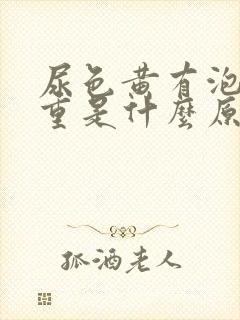 尿色黄有泡
重是什麼原
孤酒老人